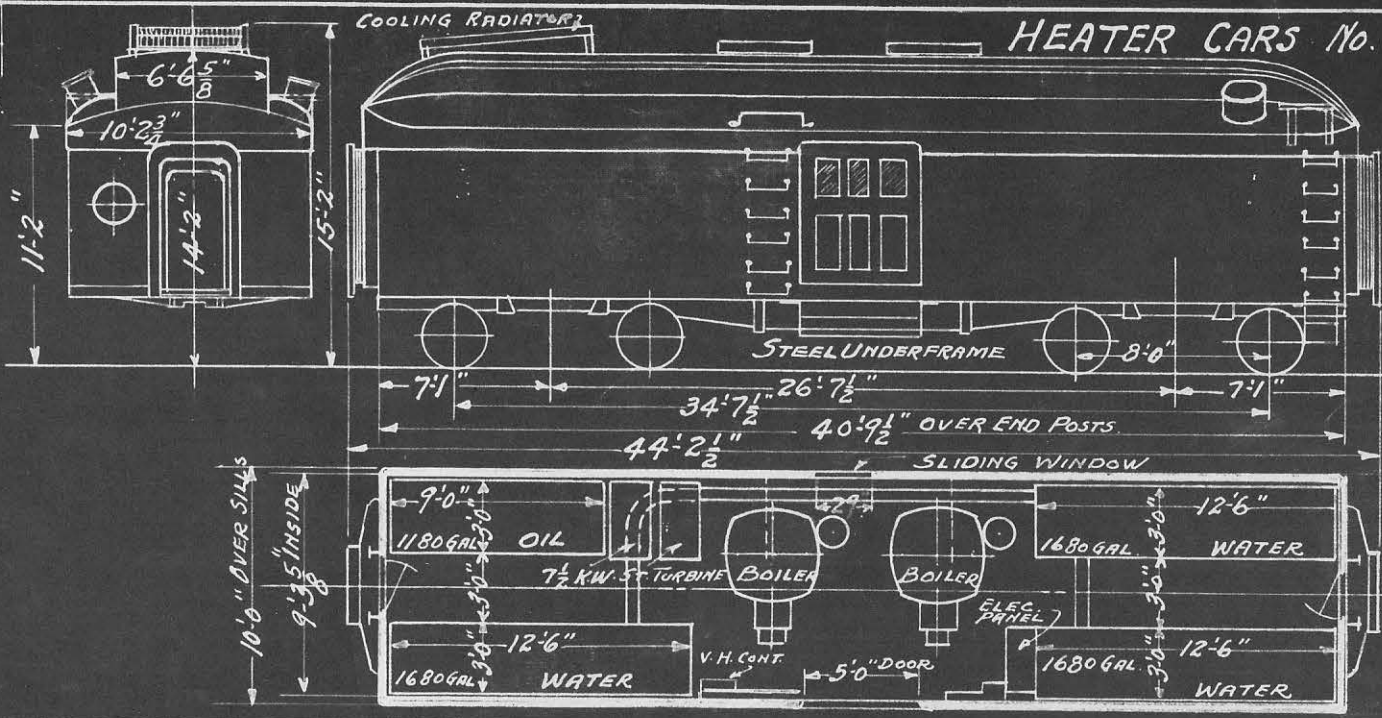 COOLING RADIATOR
HEATER CARS No.
6'-6 5/8"
10'-2 3/4"
11'-2"
14'-2"
15'-2"
STEEL UNDERFRAME
8'-0"
7'-1"
26'-7 1/2"
7'-1"
34'-7 1/2"
40'-9 1/2" OVER END POSTS
44'-2 1/2"
SLIDING WINDOW
10'-0" OVER SILLS
9'-3 5/8" INSIDE
9'-0"
1180 GAL OIL
3'-0"
3'-0"
3'-0"
7 1/2 K.W. ST. TURBINE
29
BOILER
BOILER
12'-6"
1680 GAL. WATER
3'-0"
3'-0"
3'-0"
ELEC.
PANEL
12'-6"
1680 GAL WATER
V.H. CONT.
5'-0" DOOR
12'-6"
1680 GAL WATER